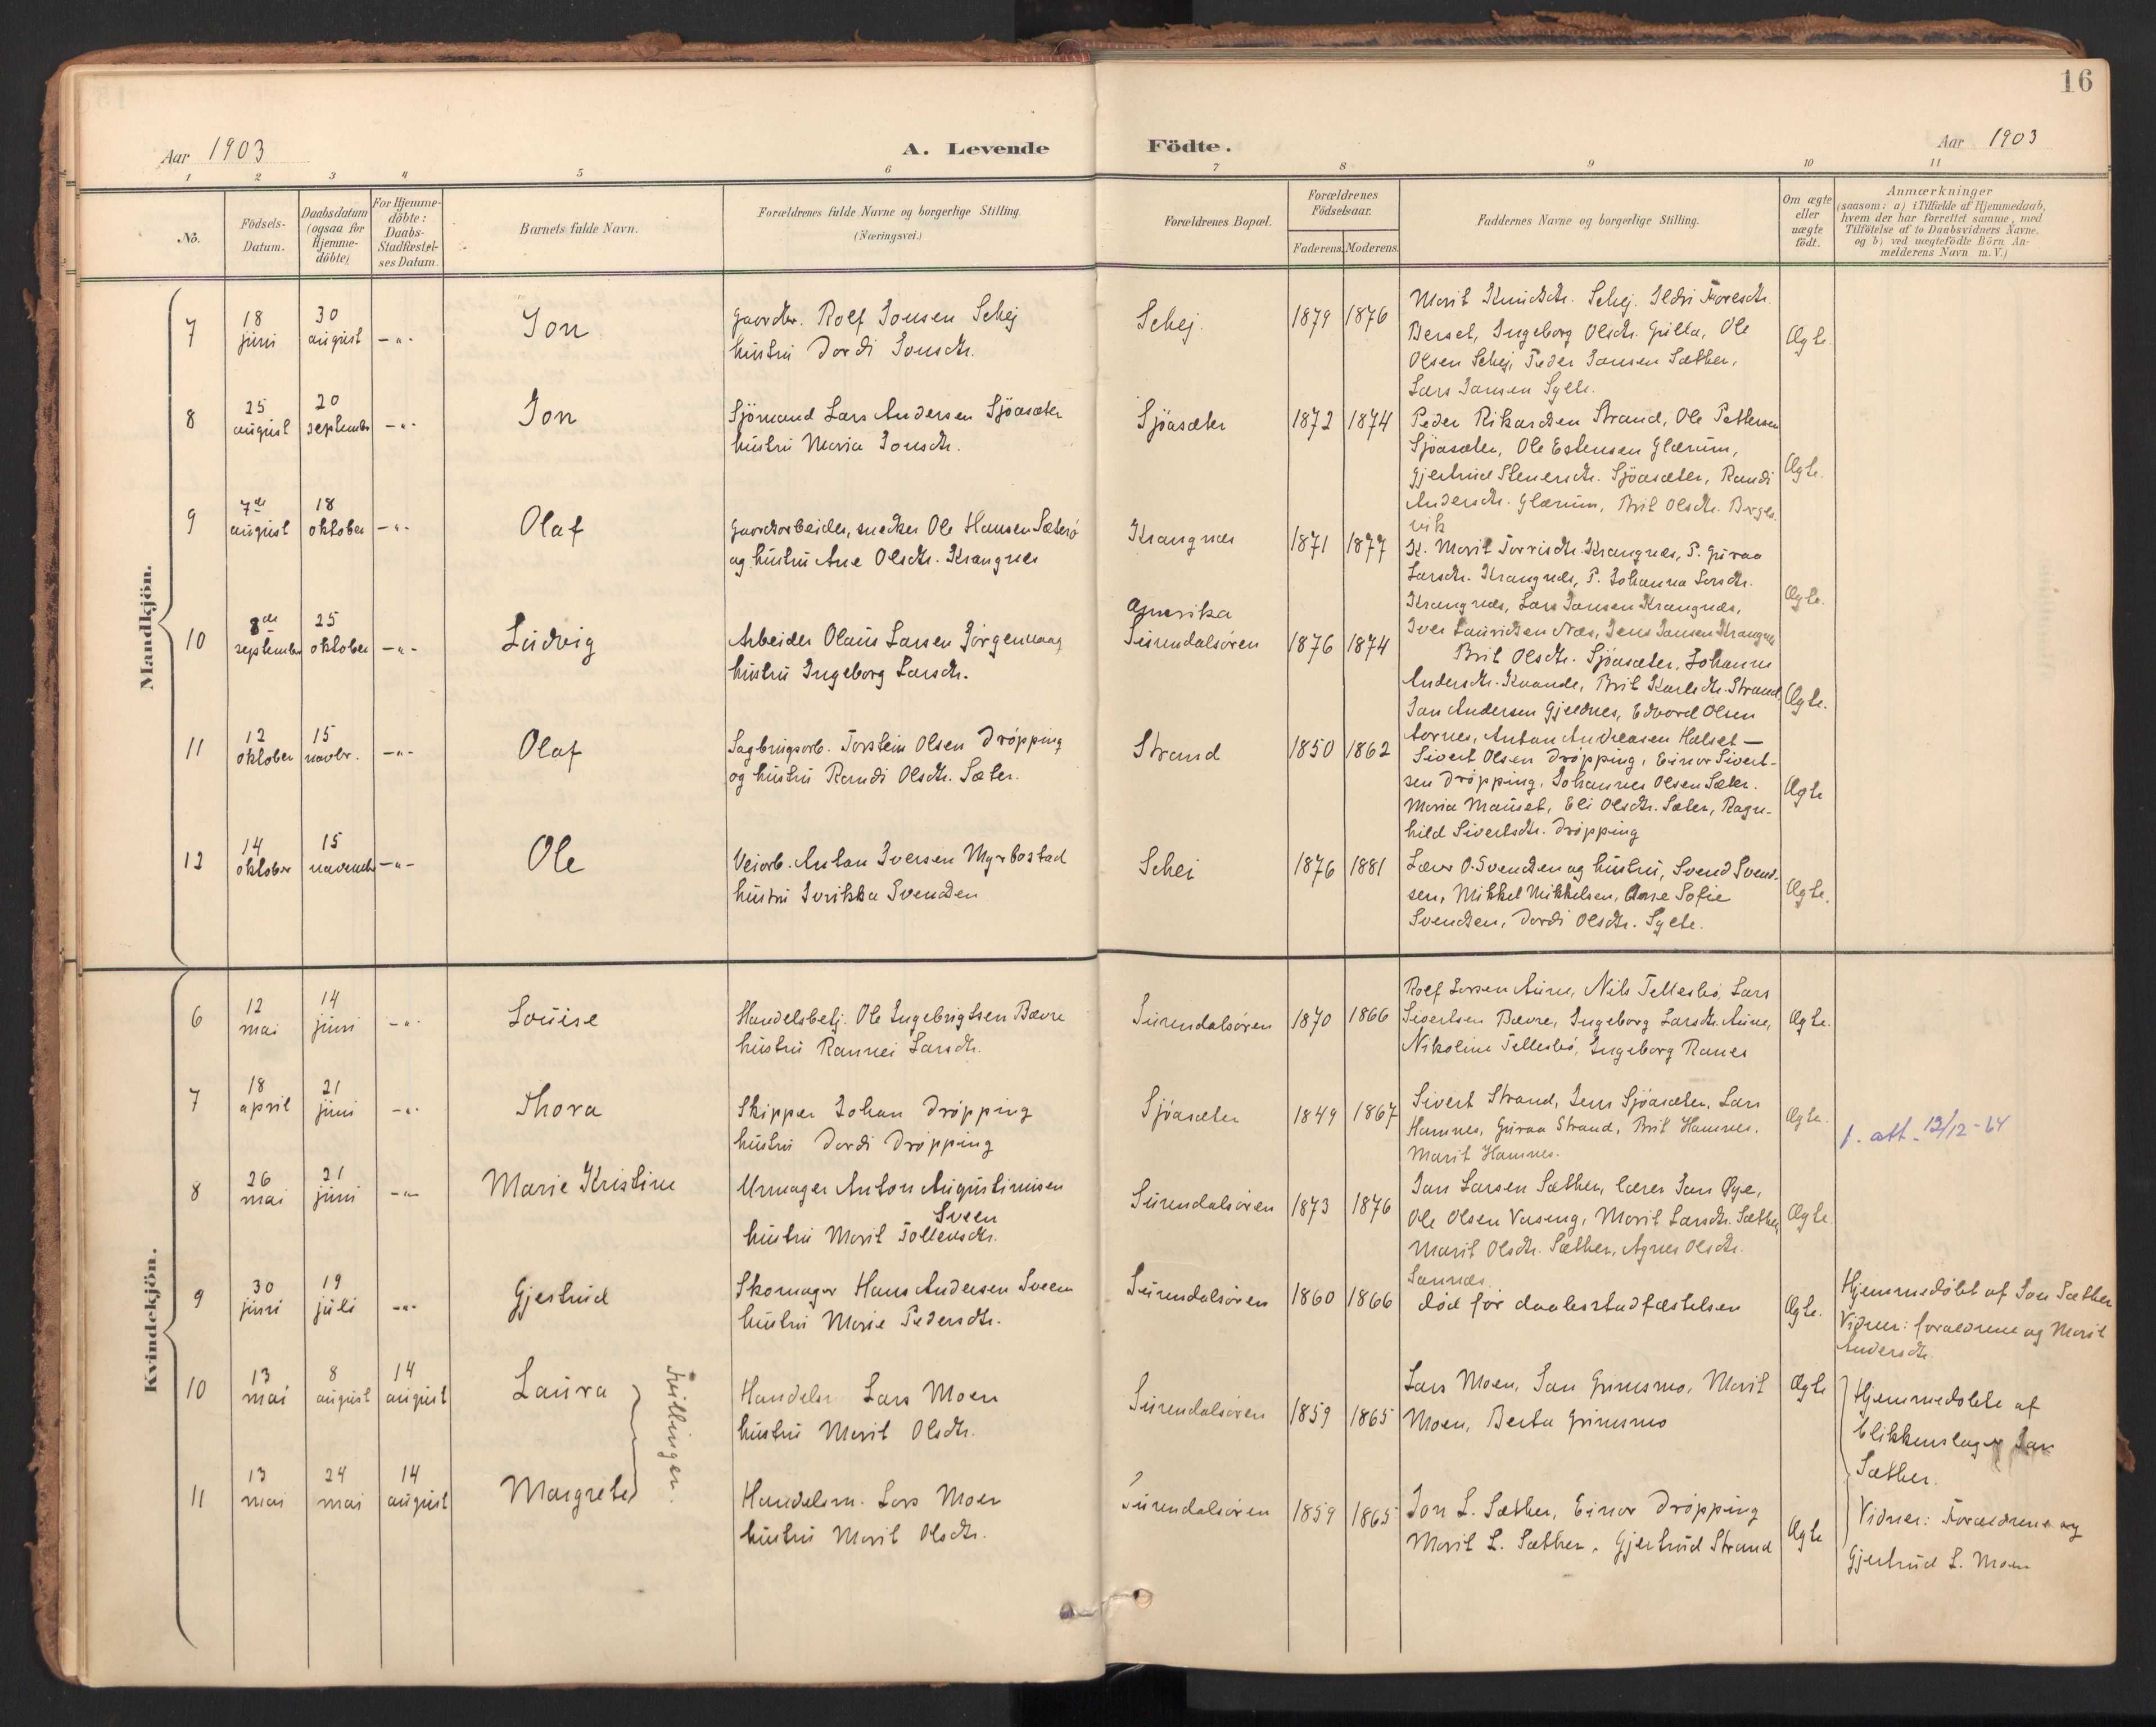 16
Aar 1903
A. Levende Födte.
Aar 1903
1 2 3 4 5 6 7 8 9 10 11
No.
Födsels-Datum.
Daabsdatum (ogsaa for Hjemme-döbte)
For Hjemme-döbte: Daabs-Stadfæstel-ses Datum.
Barnets fulde Navn.
Forældrenes fulde Navne og borgerlige Stilling.
(Næringsvei.)
Forældrenes Bopæl.
Forældrenes Födselsaar.
Faderens. Moderens.
Faddernes Navne og borgerlige Stilling.
Om ægte eller uægte födt.
Anmærkninger
(saasom: a) i Tilfælde af Hjemmedaab,
hvem der har forrettet samme, med
Tilföielse af to Daabsvidners Navne,
og b) ved uægtefödte Börn An-
melderens Navn m.V.)
Mandkjön.
7 18 juni 30 august -"- Jon
Gaardbr. Rolf Jonsen Schej
hustru Dordi Jonsdtr.
Schej. 1879 1876
Marit Knudsdtr. Schej. Ildri Toresdtr.
Berset, Ingeborg Olsdtr. Grilla, Ole
Olsen Schej, Peder Jansen Sæther,
Lars Jansen Sylte.
Ægte.
8 25 august 20 september -"- Jon
Sjömand Lars Andersen Sjöasæter
hustru Maria Jonsdtr.
Sjöasæter 1872 1874
Peder Rikardsen Strand, Ole Pettersen
Sjöasæter, Ole Estensen Glærum,
Gjertrud Stenersdtr. Sjöasæter, Randi
Andersdtr. Glærum, Brit Olsdtr. Berges-
vik
Ægte.
9 7de august 18 oktober -"- Olaf
Gaardarbeider, snedker Ole Hansen Sæterö
og hustru Ane Olsdtr. Krangnes
Krangnæs 1871 1877
K. Marit Torrisdtr. Krangnes, P. Guraa
Larsdtr. Krangnæs, P. Johanna Larsdtr.
Krangnæs, Lars Jansen Krangnæs,
Iver Lauridsen Næs, Jens Jansen Krangnæs
Ægte.
10 8de september 25 oktober -"- Ludvig
Arbeider Olaus Larsen Jörgenvaag
hustru Ingeborg Larsdtr.
Amerika
Surendalsören 1876 1874
Brit Olsdtr. Sjöasæter, Johanne
Andersdtr. Kvande, Brit Karlsdtr. Strand
Jan Andersen Gjeldnes, Edvard Olsen
Aarnes, Anton Andreasen Halset —
Ægte.
11 12 oktober 15 novbr. -"- Olaf
Sagbrugsarb. Torstein Olsen Dröpping
og hustru Randi Olsdtr. Sæter.
Strand 1850 1862
Sivert Olsen Dröpping, Einar Sivert-
sen Dröpping, Johannes Olsen Sæter.
Maria Mauset, Eli Olsdtr. Sæter, Ragn-
hild Sivertsdtr. Dröpping
Ægte
12 14 oktober 15 november -"- Ole
Veiarb. Anton Iversen Myrbostad
hustru Jorikka Svendsen
Schei 1876 1881
Lærer O. Svendsen og hustru, Svend Svend-
sen, Mikkel Mikkelsen, Anne Sofie
Svendsen, Dordi Olsdtr. Sylte.
Ægte.
Kvindekjön.
6 12 mai 14 juni -"- Louise
Handelsbetj. Ole Ingebrigtsen Bævre
hustru Rannei Larsdtr.
Surendalsören 1870 1866
Rolf Larsen Aune, Nils Tellesbö, Lars
Sivertsen Bævre, Ingeborg Larsdtr. Aune,
Nikoline Tellesbö, Ingeborg Ranes
Ægte.
7 18 april 21 juni -"- Thora
Skipper Johan Dröpping
hustru Dordi Dröpping
Sjöasæter 1849 1867
Sivert Strand, Jens Sjöasæter, Lars
Hamnes, Guraa Strand, Brit Hamnes.
Marit Hamnes.
Ægte.
f. att. 12/12-64
8 26 mai 21 juni -"- Marie Kristine
Urmager Anton Augustinusen
Sveen
hustru Marit Tollevsdtr.
Surendalsören 1873 1876
Jan Larsen Sæther, lærer Jan Öye,
Ole Olsen Vaseng, Marit Larsdtr. Sæther,
Marit Olsdtr. Sæther, Agnes Olsdtr.
Sannæs.
Ægte.
9 30 juni 19 juli -"- Gjertrud
Skomager Hans Andersen Sveen
hustru Marie Pedersdtr.
Surendalsören 1860 1866
död för daabsstadfæstelsen
Ægte.
Hjemmedöbt af Jon Sæther
Vidner: forældrene og Marit
Andersdtr
10 13 mai 8 august 14 august Laura
Tvillinger.
Handelsm. Lars Moen
hustru Marit Olsdtr.
Surendalsören 1859 1865
Lars Moen, Jan Grimsmo, Marit
Moen, Berta Grimsmo
Ægte
Hjemmedöbte af
blikkenslager Jan
Sæther.
11 13 mai 24 mai 14 august Margrete
Handelsm. Lars Moen
hustru Marit Olsdtr.
Surendalsören 1859 1865
Jon L. Sæther, Einar Dröpping
Marit L. Sæther, Gjertrud Strand
Ægte
Vidner: Forældrene og
Gjertrud L. Moen